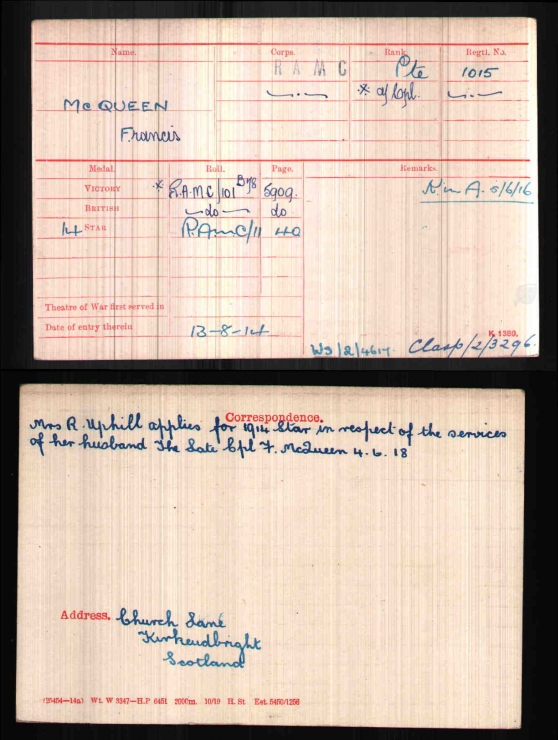 Name. Corps. Rank. Regtl. No.
R A M C Pte 1015
McQUEEN
* a/Cpl.
Francis
Medal. Roll. Page. Remarks.
VICTORY * R.A.M.C/101 B78 5909. K in A. 5/6/16
BRITISH —do— do
14 STAR R.A.M.C/11 40
Theatre of War first served in
Date of entry therein 13-8-14
K 1380.
W5/2/4617. Clasp/2/3296.
Correspondence.
Mrs R. Uphill applies for 1914 Star in respect of the services
of her husband The Late Cpl F. McQueen 4.6.18
Address. Church Lane
Kirkcudbright
Scotland
(25454—14a) Wt. W 3347—H.P 6451 200Cm. 10/19 H. St Est. 5450/1256